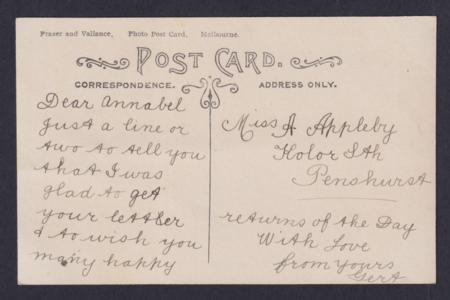 Fraser and Vallance, Photo Post Card, Melbourne.
POST CARD.
CORRESPONDENCE.
ADDRESS ONLY.
Dear Annabel
Just a line or
two to tell you
that I was
glad to get
your lettter
& to wish you
many happy
Miss A Appleby
Kolor Sth
Penshurst
returns of the Day
With Love
from yours
Gert